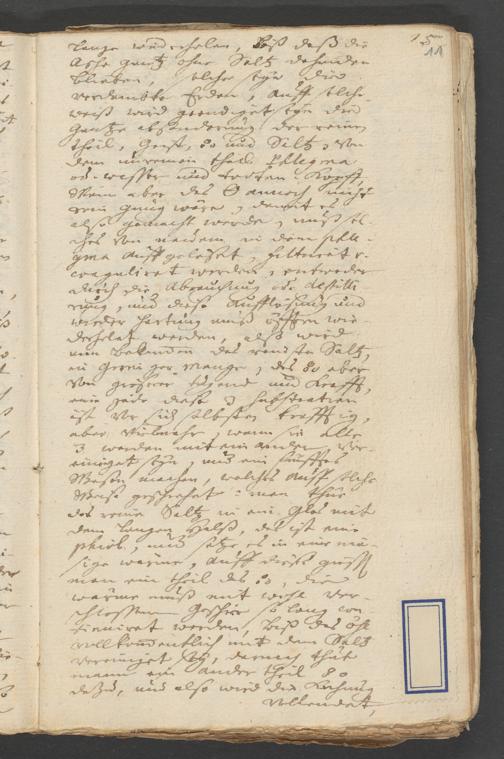 15
11
lange wiederholen, biß daß die
Asche gantz ohne Saltz dahinden
bleiben, solche seyn die
verdambte Erden, auff solche
weiß wird geendiget seyn die
Gantze absönderung der reinen
theil, Geist, und Saltz, von
dem unreinen theil Phlegma
od. wasser und
Wann aber das annoch nicht
rein genug wäre, damit es
also gemacht werde, muß sol-
ches von neuem in dem phle-
gma auff gelöset, filtrirt v.
coaguliret werden, entweder
durch die Abrauchung od. destilli
rung, und diese Aufflösung und
wieder hartung muß öffters wie
derholet werden, also wird
man bekommen das reinste Saltz,
in geringer Menge, des aber
von grosser tugend und Krafft,
ein jede diese 3 substantien
ist vor sich selbsten kräfftig,
aber vielmehr, wann sie alle
3 werden mit ein ander ver-
einiget seyn, und ein
Wesen machen, welches auff solche
Weise geschiehet: man thue
das reine Saltz in ein Glas mit
dem langen Halß, das ist eine
phiol, und setze es in eine mä-
sige wärme, auff dieses giesse
man ein theil des, die
wärme muß mit wohl ver-
schlossenem Geschirr so lang con
tinuiret werden, biß das
vollkommentlich mit dem Saltz
vereiniget sey, darnach thue
mann ein ander theil
dazu, und also wird die Kochung
vollendet,